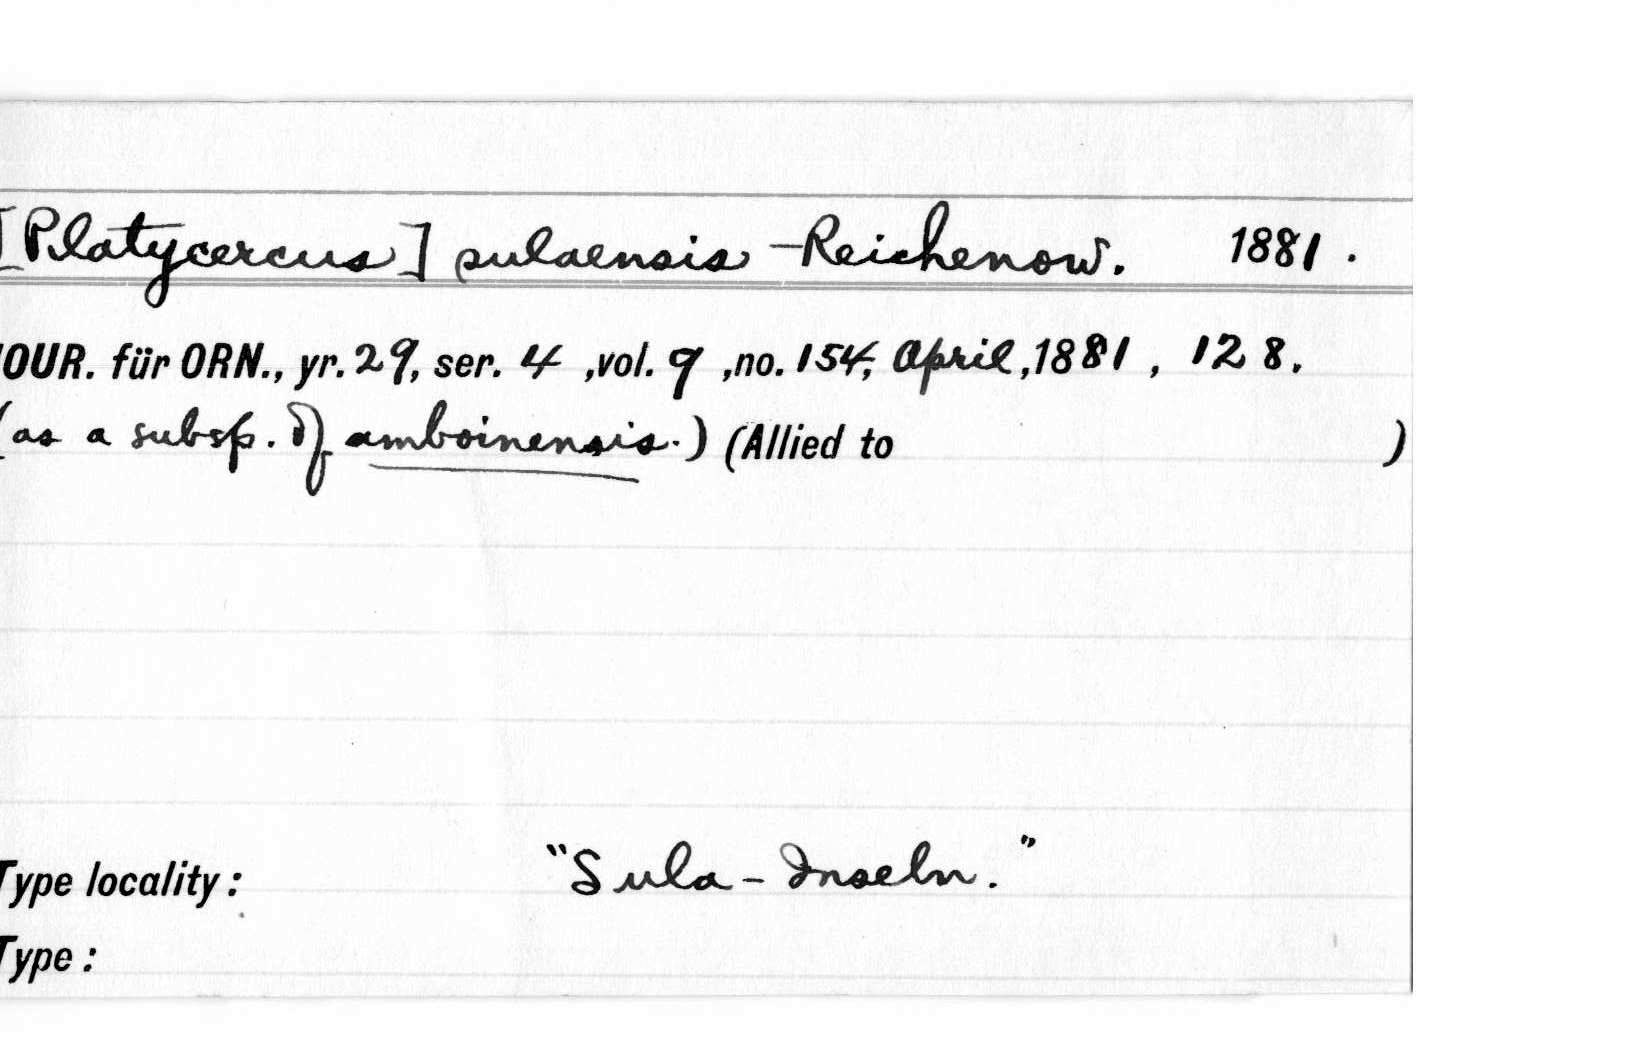 [Platycercus] sulaensis —Reichenow. 1881.
JOUR. für ORN., yr. 29, ser. 4 ,vol. 9 ,no. 154, April, 1881 , 128.
(as a subsp. of amboinensis.) (Allied to )
Type locality: "Sula-Inseln."
Type: